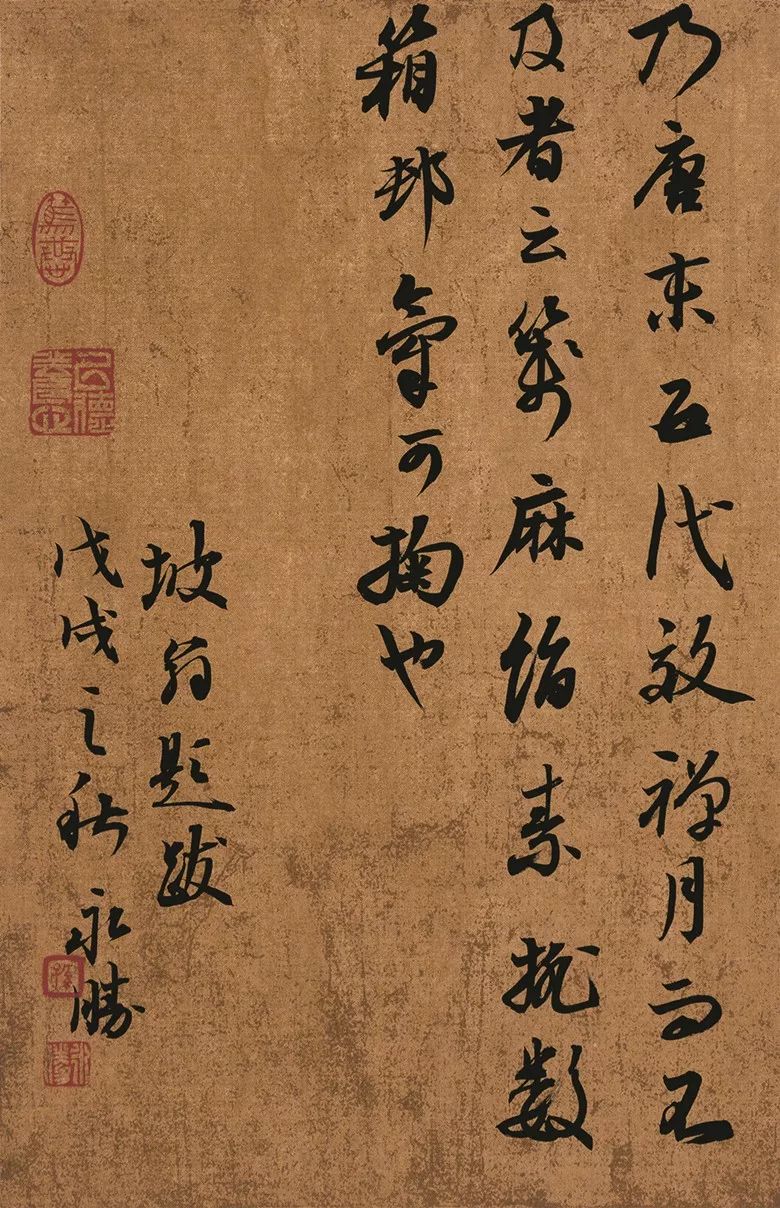 乃唐末五代效禪月而不
及者云箋麻絹素排數
箱邨氣可掬也
坡翁題跋
戊戌之秋 永勝